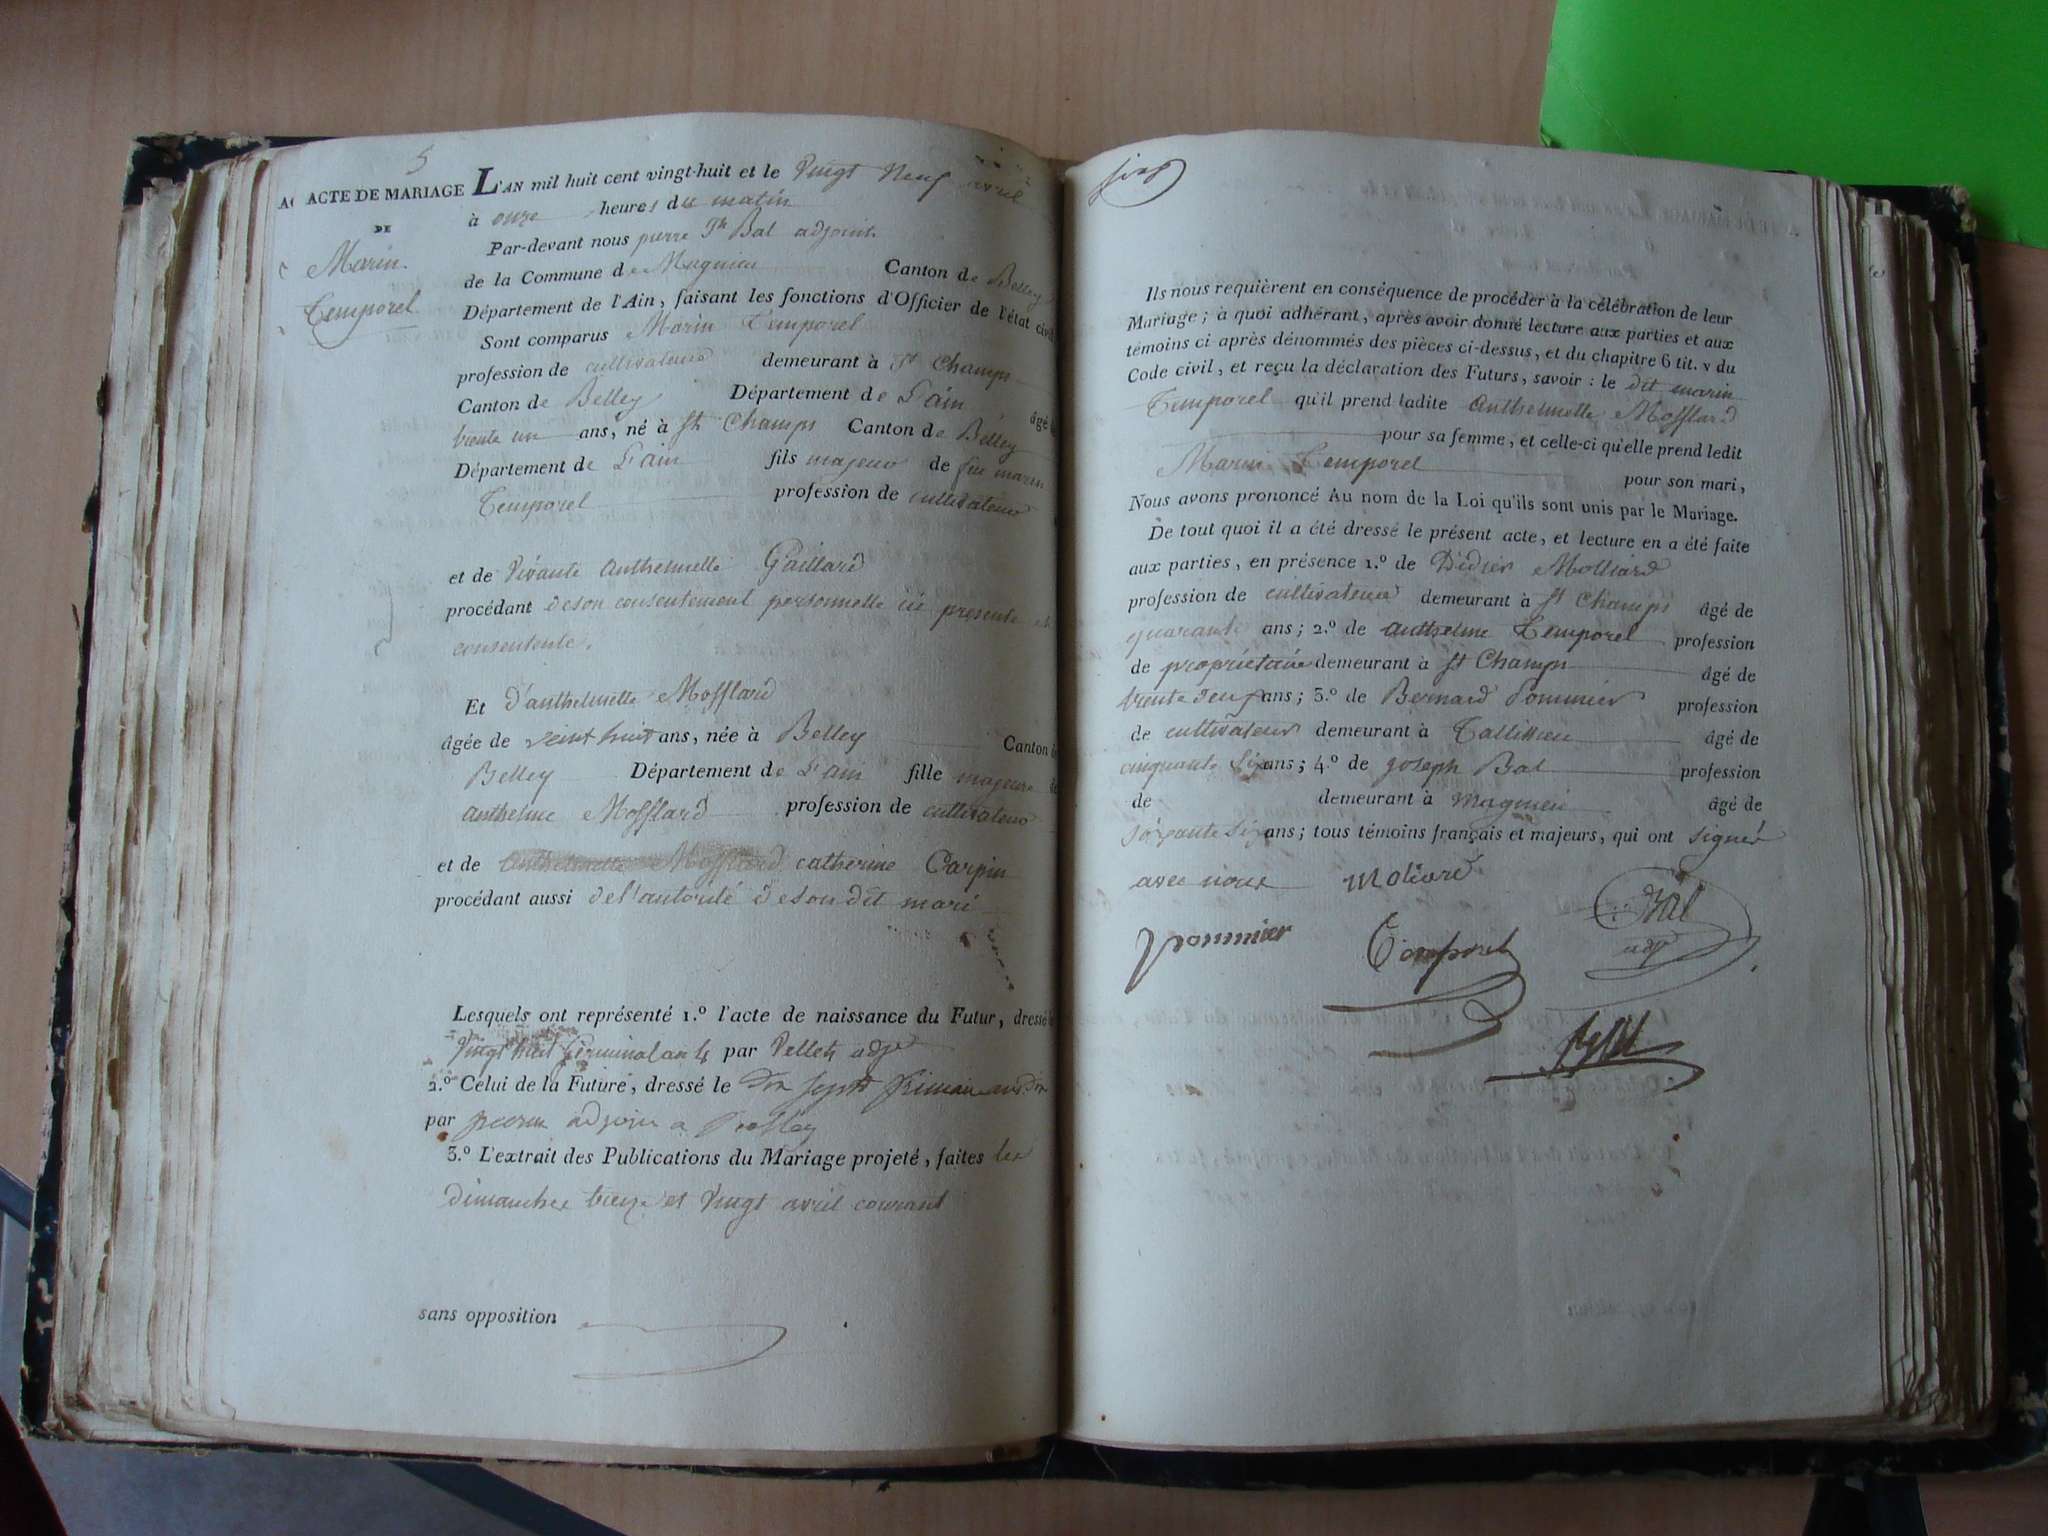 5
ACTE DE MARIAGE
DE
Marin
Temporel
L'AN mil huit cent vingt-huit et le Vingt Neuf avril
à onze heures du matin
Par-devant nous pierre Jh Bal adjoint
de la Commune de Magnieu Canton de Belley
Département de l'Ain, faisant les fonctions d'Officier de l'état civil
Sont comparus Marin Temporel
profession de cultivateur demeurant à St Champs
Canton de Belley Département de L'ain âgé
trente un ans, né à St Champs Canton de Belley
Département de L'ain fils majeur de feu marin
Temporel profession de cultivateur
et de Vivante anthelmette Gaillard
procédant deson consentement personnelle ici presente et
consentente.
Et D'anthelmette Mofflard
âgée de veint huit ans, née à Belley Canton
Belley Département de L'ain fille majeure
anthelme Mofflard profession de cultivateur
et de anthelmette Mofflard catherine Carpin
procédant aussi del'autorité deson dit mari
Lesquels ont représenté 1.º l'acte de naissance du Futur, dressé
Vingt huit Germinal an 4 par Pellet adjt
2.º Celui de la Future, dressé le
par adjoin a
3.º L'extrait des Publications du Mariage projeté, faites les
dimanches treize et Vingt avril courant
sans opposition
Ils nous requièrent en conséquence de procéder à la célébration de leur
Mariage; à quoi adhérant, après avoir donné lecture aux parties et aux
témoins ci-après dénommés des pièces ci-dessus, et du chapitre 6 tit. v du
Code civil, et reçu la déclaration des Futurs, savoir: le dit marin
Temporel qu'il prend ladite anthelmette Mofflard
pour sa femme, et celle-ci qu'elle prend ledit
Marin Temporel pour son mari,
Nous avons prononcé Au nom de la Loi qu'ils sont unis par le Mariage.
De tout quoi il a été dressé le présent acte, et lecture en a été faite
aux parties, en présence 1.º de Didier Molliard
profession de cultivateur demeurant à St Champs âgé de
quarante ans; 2.º de anthelme Temporel profession
de propriétaire demeurant à St Champs âgé de
trente neuf ans; 3.º de Bernard Pommier profession
de cultivateur demeurant à Tallissieu âgé de
cinquante six ans; 4.º de joseph Bal profession
de demeurant à magnieu âgé de
soixante six ans; tous témoins français et majeurs, qui ont signér
avec nous
Pommier
Temporel
Bal
adjt